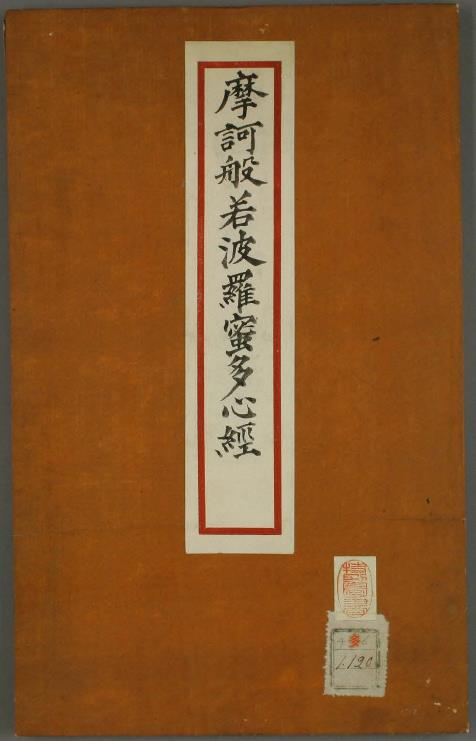 摩訶般若波羅蜜多心經
1.120